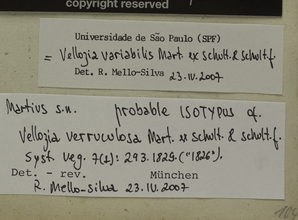 copyright reserved
Universidade de São Paulo (SPF)
= Vellozia variabilis Mart. ex Schult. & Schult.f.
Det. R. Mello-Silva 23.IV.2007
Martius s.n. probable ISOTYPUS of
Vellozia verruculosa Mart. ex Schult. & Schult.f.
Syst. Veg. 7(2): 293. 1829. ("1826").
Det. - rev. München
R. Mello-Silva 23.IV.2007